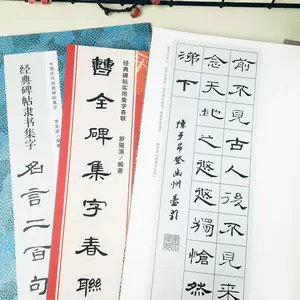 经典碑帖隶书集字
名言二百句
经典碑帖实用集字春联
罗锡清/编著
曹全碑集字春聯
前不見古人後不見
念天地之悠悠獨愴然
涕下
陳子昂登幽州臺歌